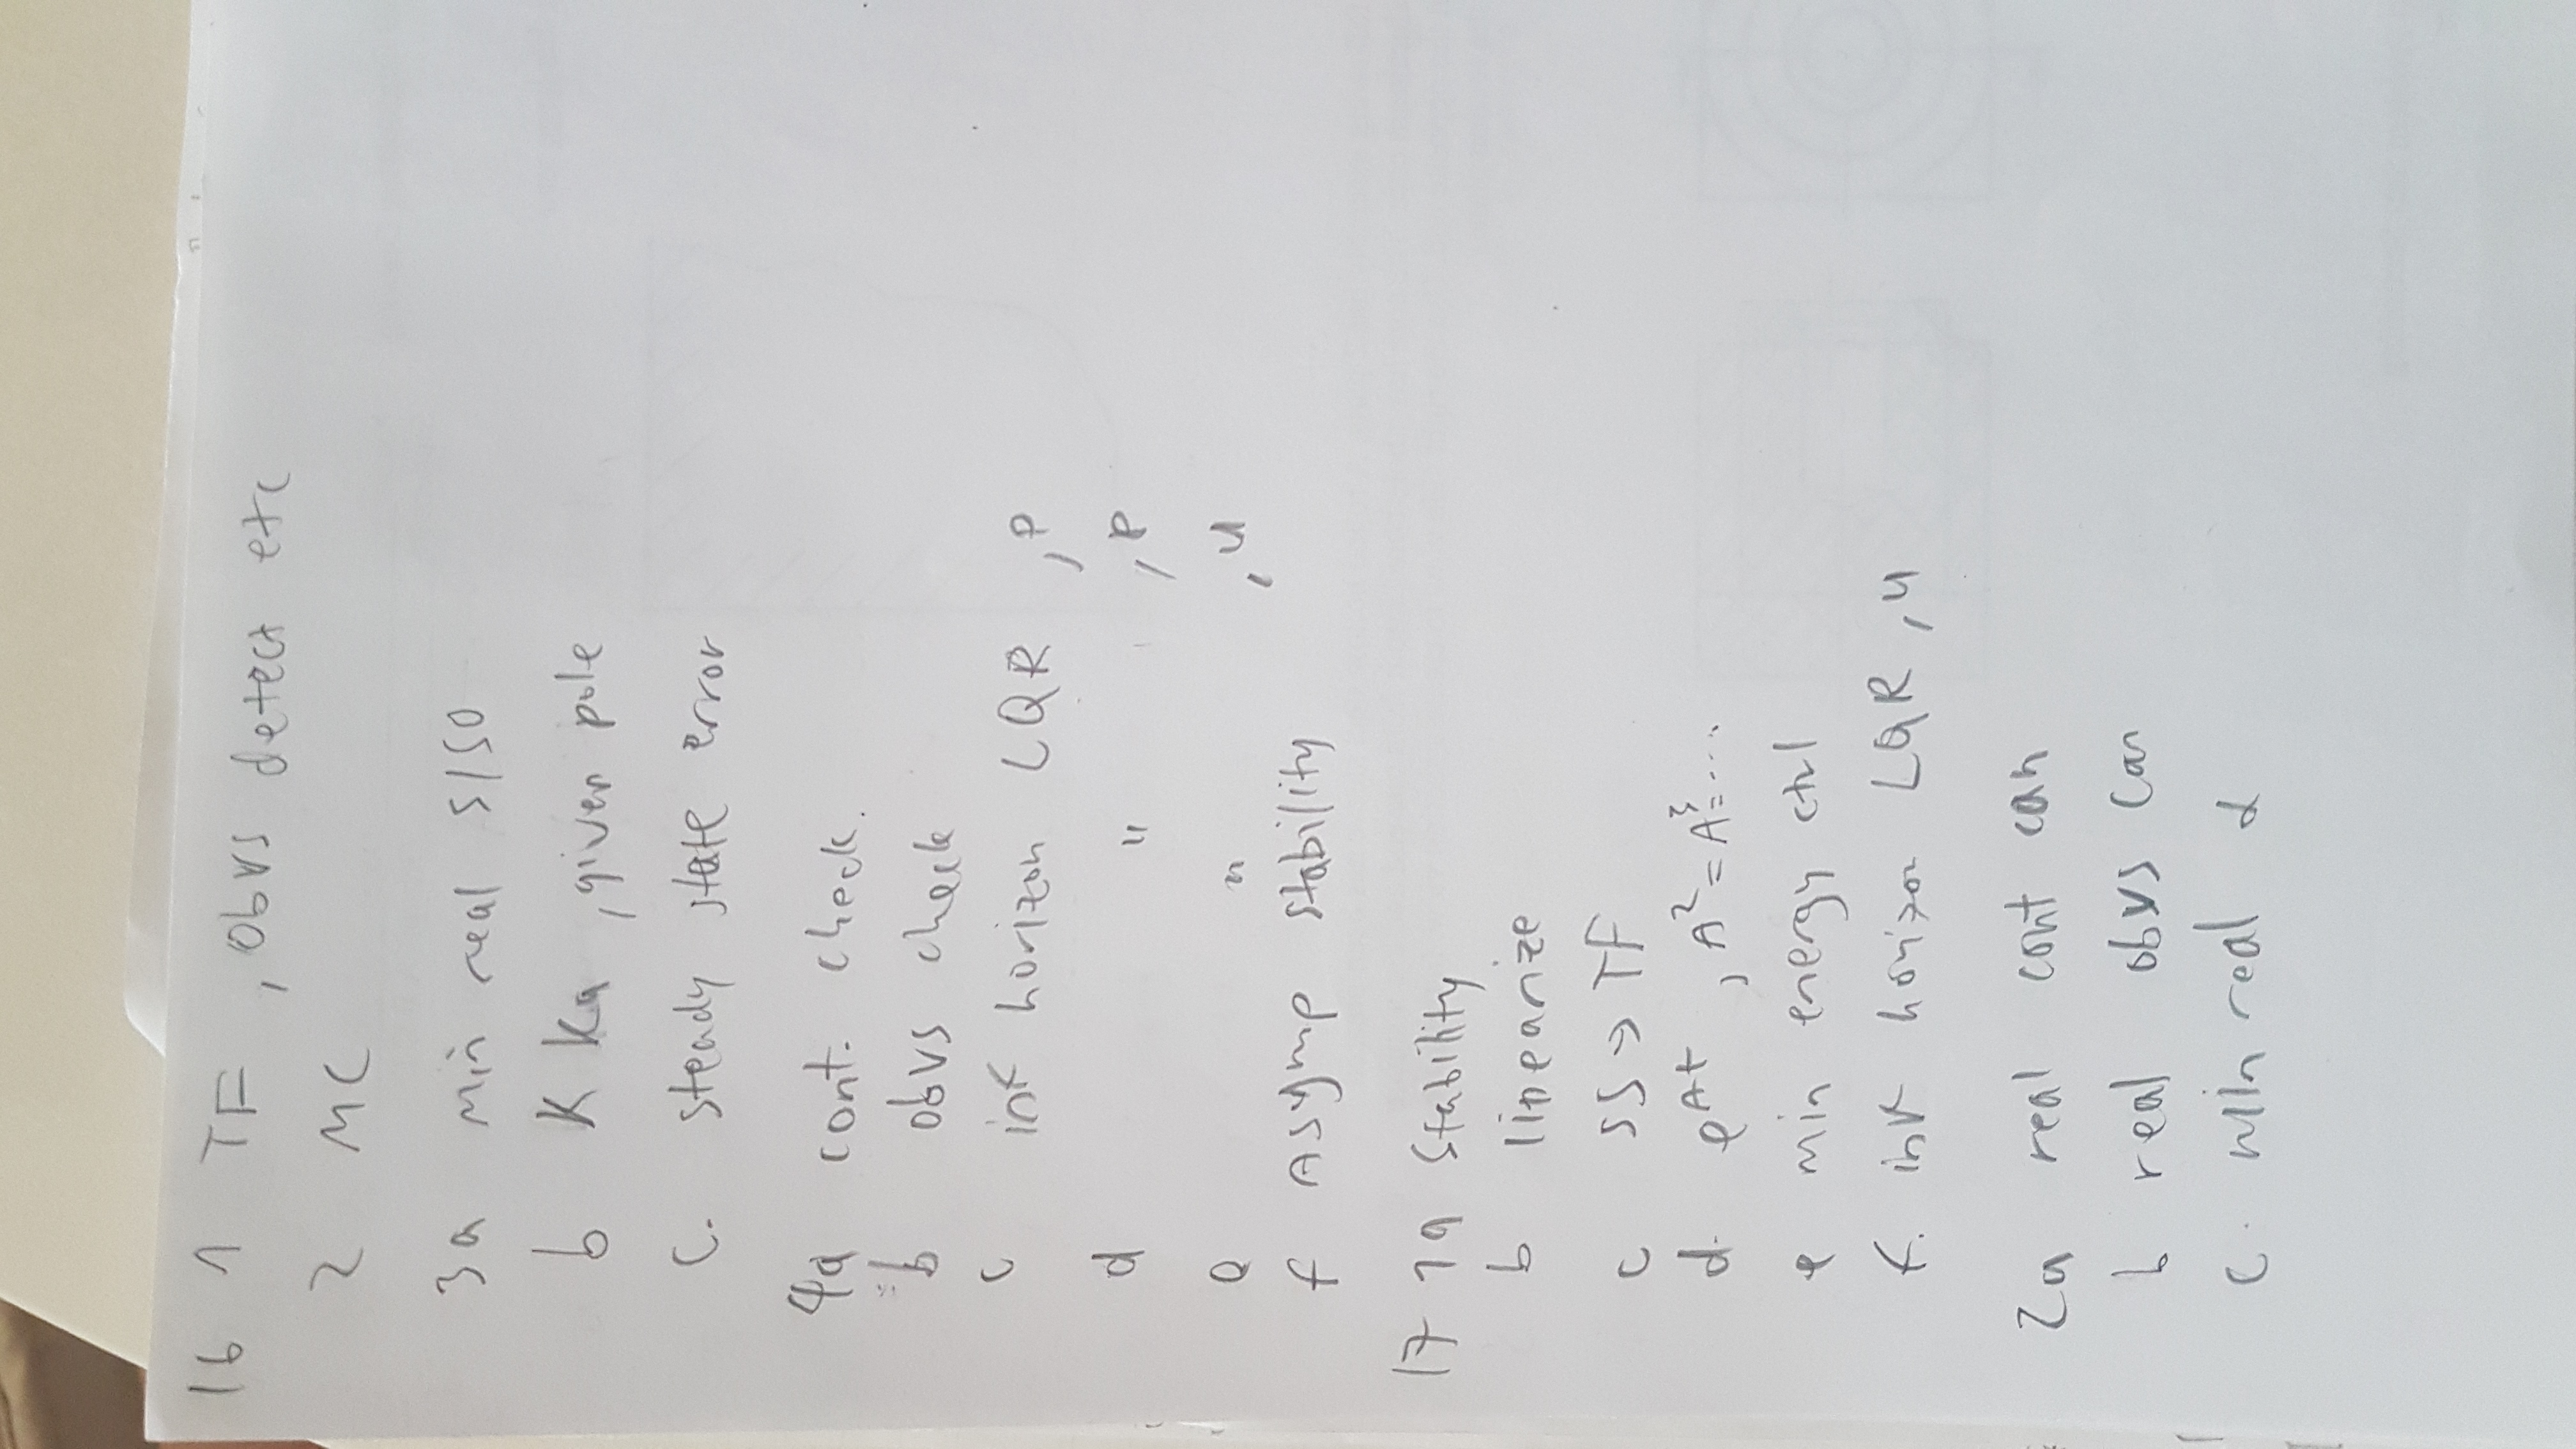 16 1 TF , obvs detect etc
2 MC
3a min real SISO
b K Ka , given pole
c. steady state error
4a cont. check.
b obvs check
c inf horizon LQR , P
d " , P
e " , u
f Asymp stability
17 1a Stability
b linearize
c SS → TF
d. e^At , A² = A³ = ....
e min energy ctrl
f. inf horizon LQR , u
2a real cont can
b real obvs can
c. min real α